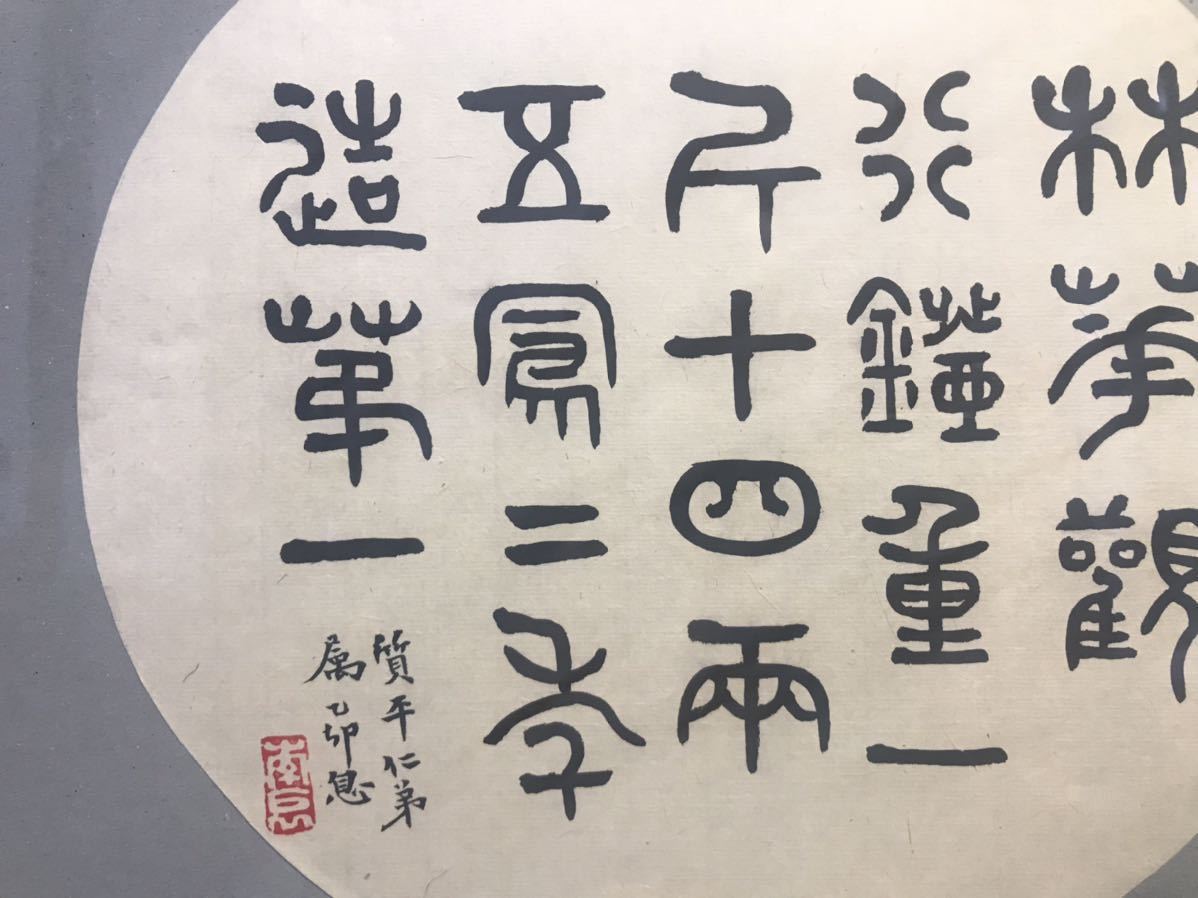 林華觀
行鐙重一
斤十四兩
五鳳二年
造第一
質平仁弟
属乙卯息